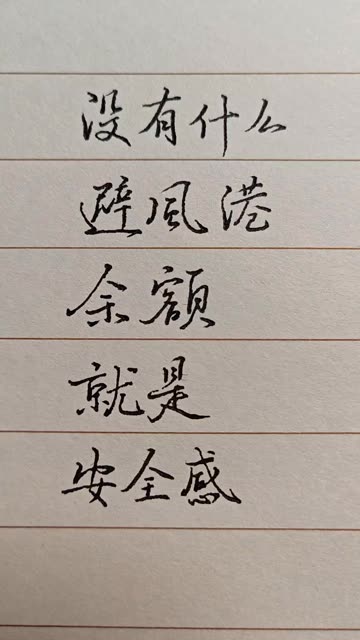 没有什么
避風港
余额
就是
安全感